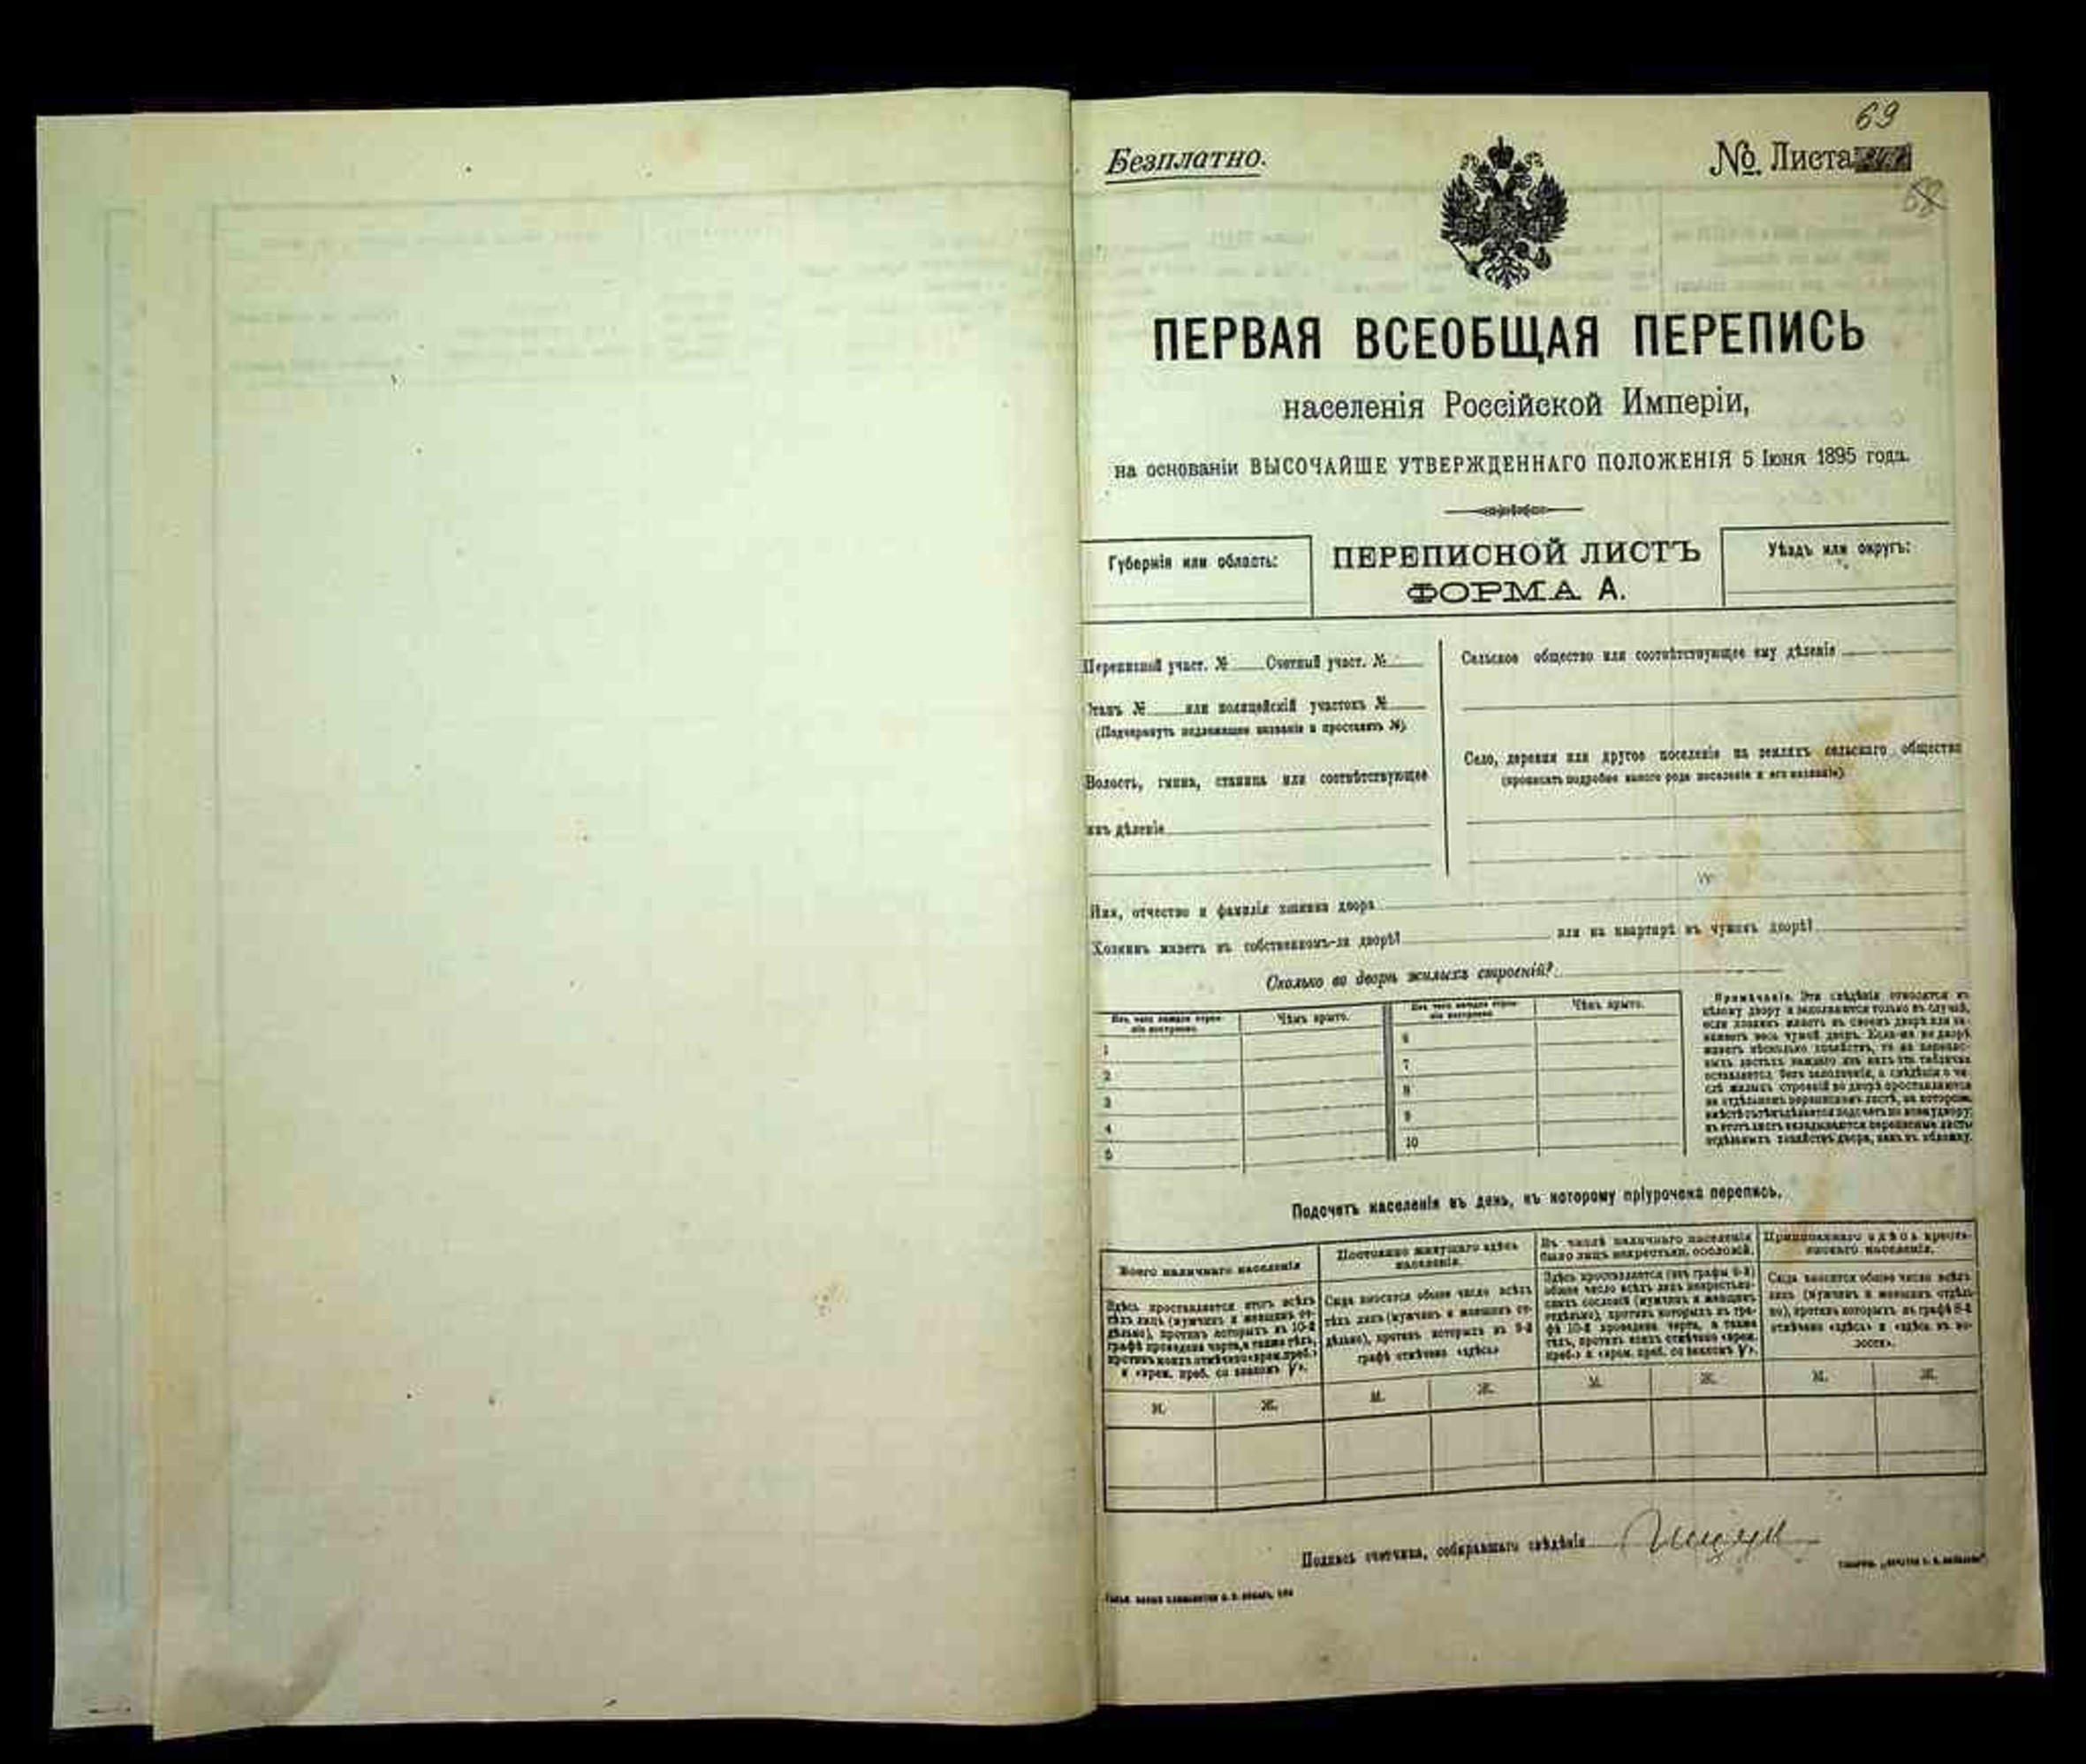 69
Безплатно.
№ Листа
68
ПЕРВАЯ ВСЕОБЩАЯ ПЕРЕПИСЬ
населенія Россійской Имперіи,
на основаніи ВЫСОЧАЙШЕ УТВЕРЖДЕННАГО ПОЛОЖЕНІЯ 5 Іюня 1895 года.
Губернія или область:
ПЕРЕПИСНОЙ ЛИСТЪ
ФОРМА А.
Уѣздъ или округъ:
Переписной участ. № Счетный участ. №
Станъ № или полицейскій участокъ №
(Подчеркнуть надлежащее названіе и проставить №)
Волость, гмина, станица или соотвѣтствующее
имъ дѣленіе
Сельское общество или соотвѣтствующее ему дѣленіе
Село, деревня или другое поселеніе на земляхъ сельскаго общества
(прописать подробнее какого рода поселеніе и его названіе)
Имя, отчество и фамилія хозяина двора
Хозяинъ живетъ въ собственномъ-ли дворѣ? или на квартирѣ въ чужомъ дворѣ?
Сколько во дворѣ жилыхъ строеній?
Изъ чего каждое строе-
ніе построено.
Чѣмъ крыто.
Изъ чего каждое строе-
ніе построено.
Чѣмъ крыто.
1
2
3
4
5
6
7
8
9
10
Примѣчаніе. Эти свѣдѣнія относятся къ
цѣлому двору и заполняются только въ случаѣ,
если хозяинъ живетъ въ своемъ дворѣ или за-
нимаетъ весь чужой дворъ. Если-же во дворѣ
живетъ нѣсколько хозяйствъ, то на перепис-
ныхъ листахъ каждаго изъ нихъ эта табличка
оставляется безъ заполненія, а свѣдѣнія о чи-
слѣ жилыхъ строеній во дворѣ проставляются
на отдѣльномъ переписномъ листѣ, на которомъ
вмѣстѣ съ тѣмъ дѣлается подсчетъ по всему двору;
въ этотъ листъ вкладываются переписные листы
отдѣльныхъ хозяйствъ двора, какъ въ обложку.
Подсчетъ населенія въ день, къ которому пріурочена перепись.
Всего наличнаго населенія
Постоянно живущаго здѣсь
населенія.
Въ числѣ наличнаго населенія
было лицъ некрестьян. сословій.
Приписаннаго здѣсь кресть-
янскаго населенія.
Здѣсь проставляется итогъ всѣхъ
тѣхъ лицъ (мужчинъ и женщинъ от-
дѣльно), противъ которыхъ въ 10-й
графѣ проведена черта, а также тѣхъ,
противъ коихъ отмѣчено «врем. преб.»
и «врем. преб. со знакомъ V».
Сюда вносится общее число всѣхъ
тѣхъ лицъ (мужчинъ и женщинъ от-
дѣльно), противъ которыхъ въ 9-й
графѣ отмѣчено «здѣсь»
Здѣсь проставляется (изъ графы 6-й)
общее число всѣхъ лицъ некрестьян-
скихъ сословій (мужчинъ и женщинъ
отдѣльно), противъ которыхъ въ гра-
фѣ 10-й проведена черта, а также
тѣхъ, противъ коихъ отмѣчено «врем.
преб.» и «врем. преб. со знакомъ V».
Сюда вносится общее число всѣхъ
лицъ (мужчинъ и женщинъ отдѣль-
но), противъ которыхъ въ графѣ 8-й
отмѣчено «здѣсь» и «здѣсь въ во-
лости».
М. Ж. М. Ж. М. Ж. М. Ж.
Подпись счетчика, собиравшаго свѣдѣнія